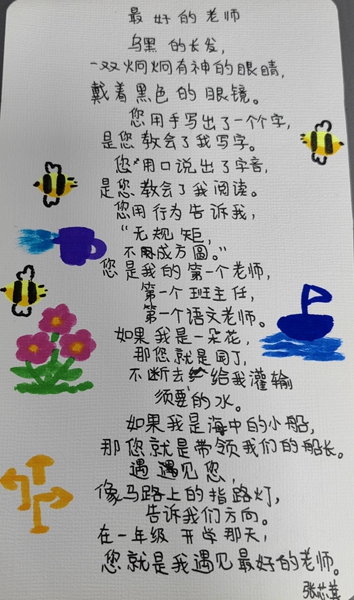 最好的老师
乌黑的长发，
一双炯炯有神的眼睛，
戴着黑色的眼镜。
您用手写出了一个个字，
是您教会了我写字。
您用口说出了字音，
是您教会了我阅读。
您用行为告诉我，
“无规矩，
不成方圆。”
您是我的第一个老师，
第一个班主任，
第一个语文老师。
如果我是一朵花，
那您就是园丁，
不断去给我灌输
须要的水。
如果我是海中的小船，
那您就是带领我们的船长。
遇遇见您，
像马路上的指路灯，
告诉我们方向。
在一年级开学那天，
您就是我遇见最好的老师。
张芯